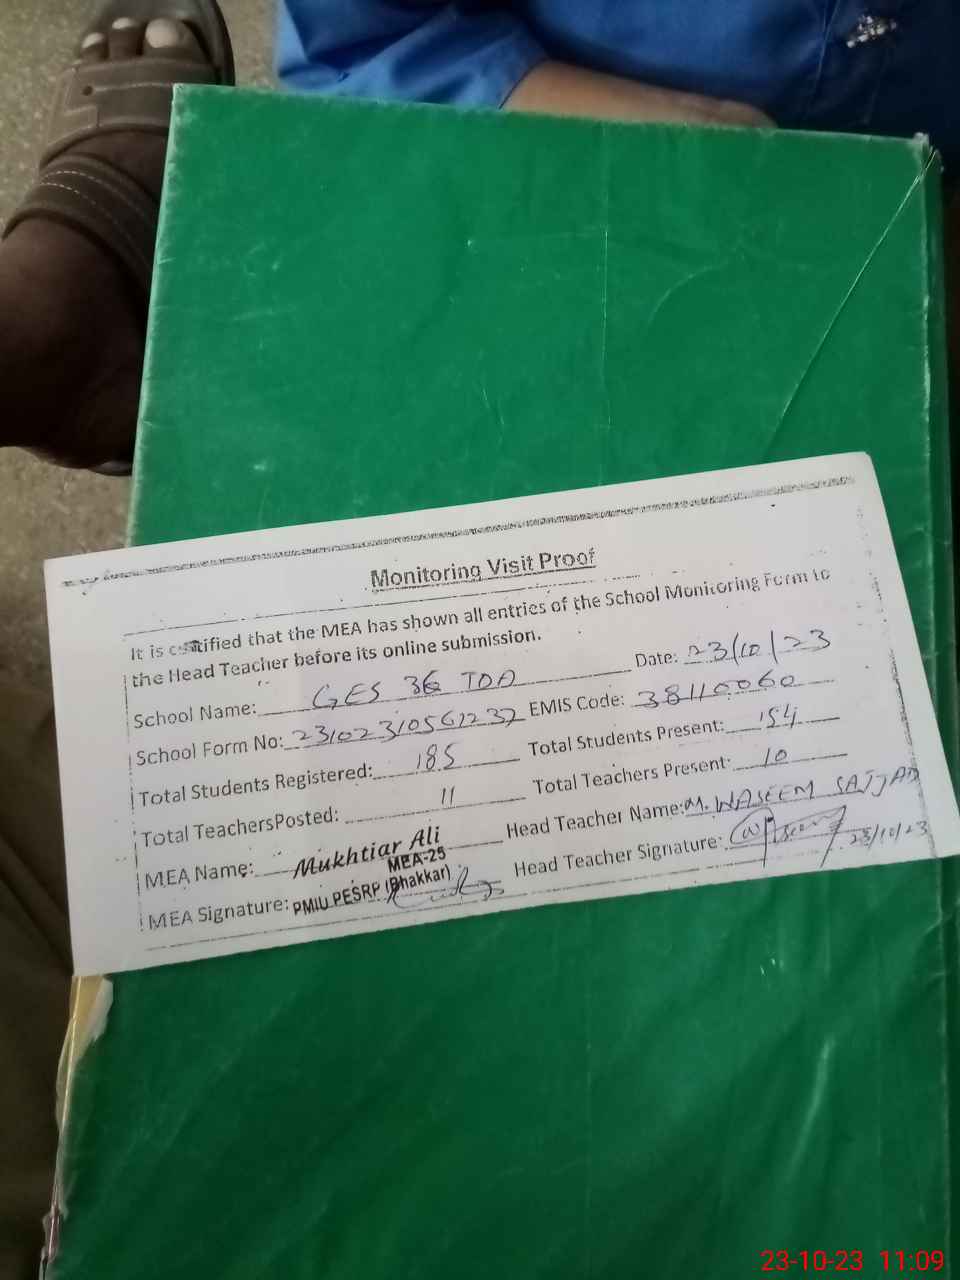 Monitoring Visit Proof
It is certified that the MEA has shown all entries of the School Monitoring Form to
the Head Teacher before its online submission.
Date: 23/10/23
School Name: GES 36 TDA
School Form No: EMIS Code: 38110060
Total Students Registered: 185 Total Students Present: 154
Total TeachersPosted: 11 Total Teachers Present: 10
MEA Name: Mukhtiar Ali Head Teacher Name: M. WASEEM SAJJAD
MEA-25
MEA Signature: PMIU PESRP (Bhakkar) Head Teacher Signature: 23/10/23
23-10-23 11:09